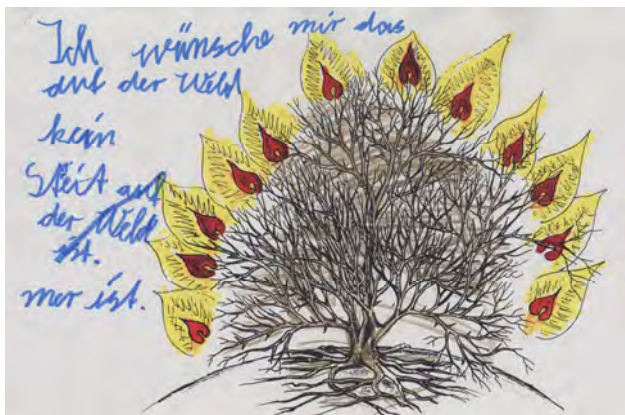 Ich wünsche mir das
auf der Weld
kein
Steit auf
der Weld
ist.
mer ist.